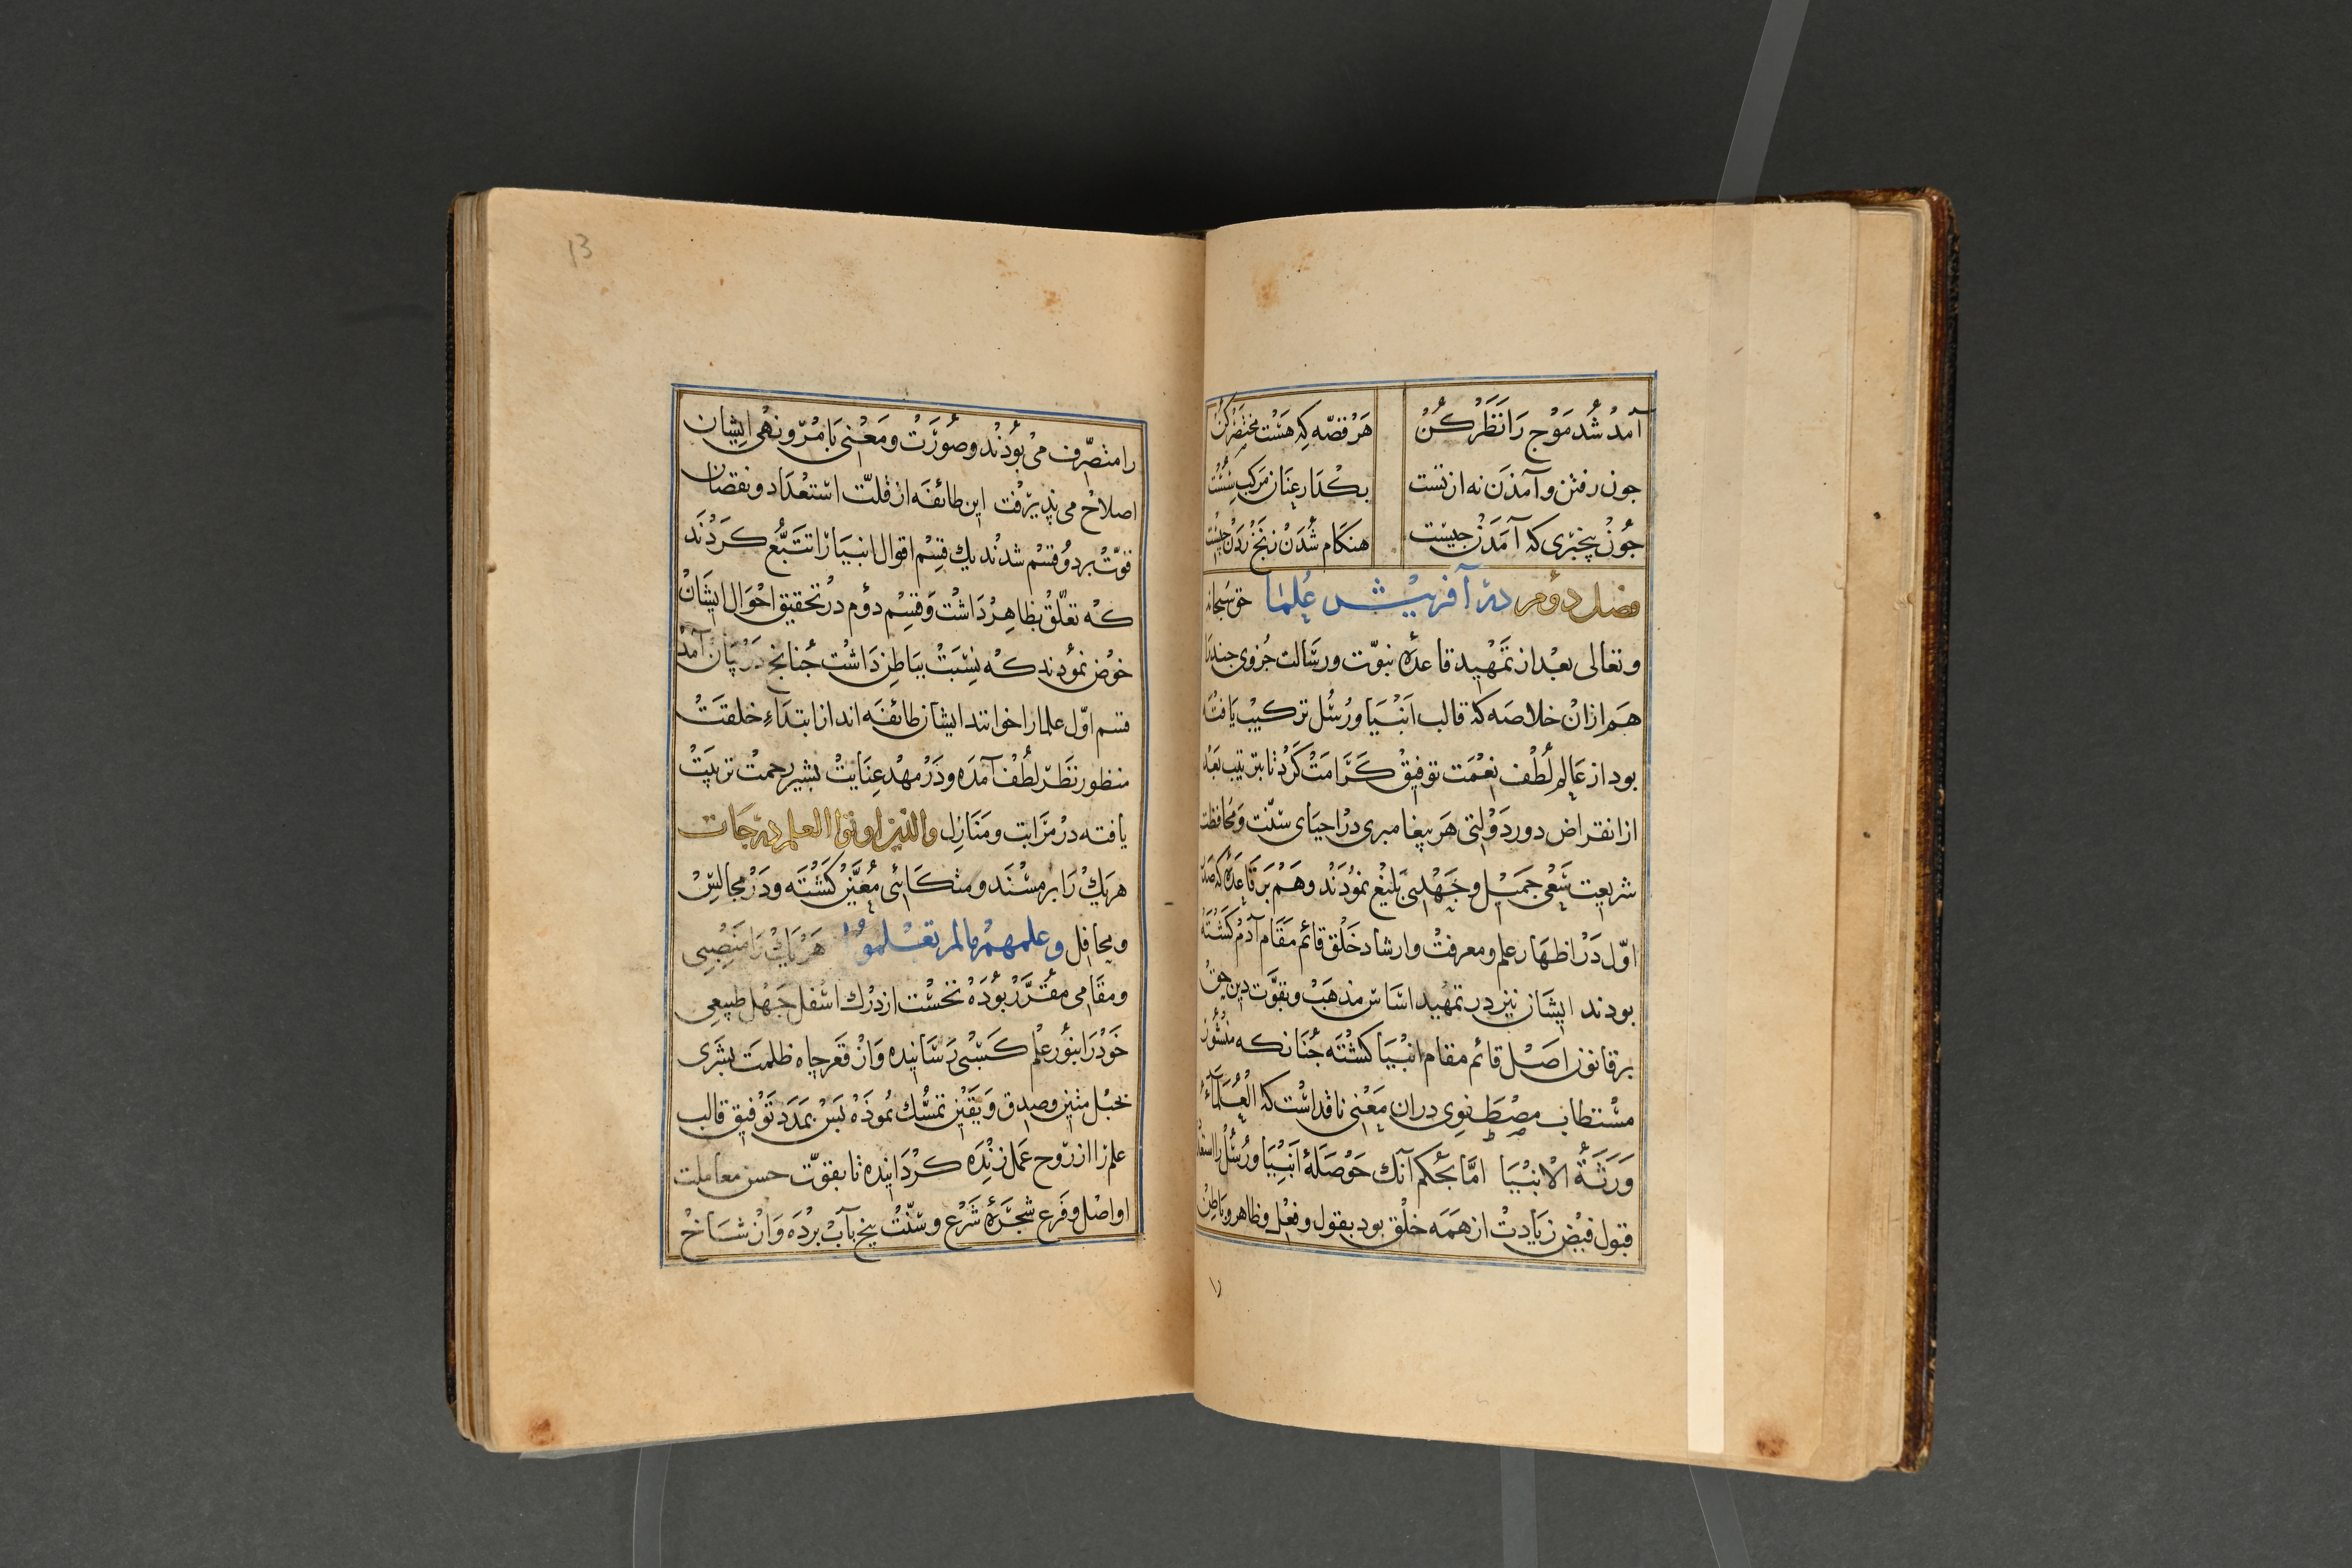 آمد شد موج را نظر کن هر قصه که هست مختصر کن
جون رفتن و آمدن نه از تست بکذار عنان مرکب سست
جون بیخبری که آمدن جیست هنکام شدن زنخ زدن جیست
فصل دوم در آفرینش علما حق سبحانه
و تعالی بعد از تمهید قاعده نبوت و رسالت جزوی جند را
هم ازان خلاصه که قالب انبیا و رسل ترکیب یافته
بود از عالم لطف نعمت توفیق کرامت کرد تا بترتیب بعد
از انقراض دور دولتی هر پیغامبری در احیای سنت و محافظت
شریعت سعی جمیل و جهدی بلیغ نمودند و هم بر قاعده که
اول در اظهار علم و معرفت و ارشاد خلق قائم مقام آدم کشته
بودند ایشان نیز در تمهید اساس مذهب و بقوت دین حق
بر قانون اصل قائم مقام انبیا کشته جنانکه منشور
مستطاب مصطفوی دران معنی نافذ است که العلماء
ورثة الانبیا اما بحکم آنک حوصله انبیا و رسل را استعداد
قبول فیض زیادت از همه خلق بود بقول و فعل و ظاهر و باطن
را
13
را متصرف می بودند و صورت و معنی با مر و نهی ایشان
اصلاح می پذیرفت این طائفه از قلت استعداد و نقصان
قوت بر دو قسم شدند یک قسم اقوال انبیا را تتبع کردند
که تعلق بظاهر داشت و قسم دوم در تحقیق احوال ایشان
خوض نمودند که نسبت بباطن داشت جنانج در بیان آمد
قسم اول علما را خوانند ایشان طائفه اند از ابتداء خلقت
منظور نظر لطف آمده و در مهد عنایت بشیر رحمت تربیت
یافته در مراتب و منازل والذین اوتوا العلم درجات
هر یک را بر مسند و متکائی معین کشته و در مجالس
و محافل و علمهم مالم تعلموا هر یک را منصبی
و مقامی مقرر بوده نخست از درک اسفل جهل طبیعی
خود را بنور علم کسبی رسانیده و از قعر جاه ظلمت بشری
بحبل متین و صدق و یقین تمسک نموده بس بمدد توفیق قالب
علم را از روح عمل زنده کردانیده تا بقوت حسن معاملت
او اصل و فرع شجره شرع و سنت بیخ بآب برده و از شاخ